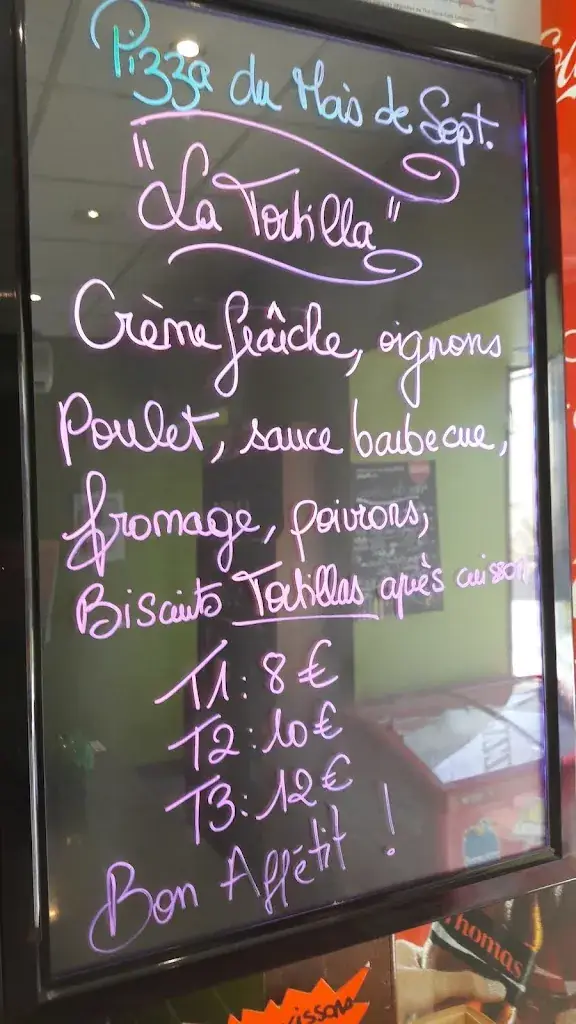 Pizza du Mois de Sept.
"La Tortilla"
Crème fraîche, oignons
Poulet, sauce barbecue,
fromage, poivrons,
Biscuits Tortillas après cuisson
T1: 8€
T2: 10€
T3: 12€
Bon Appétit !
Thomas
issons